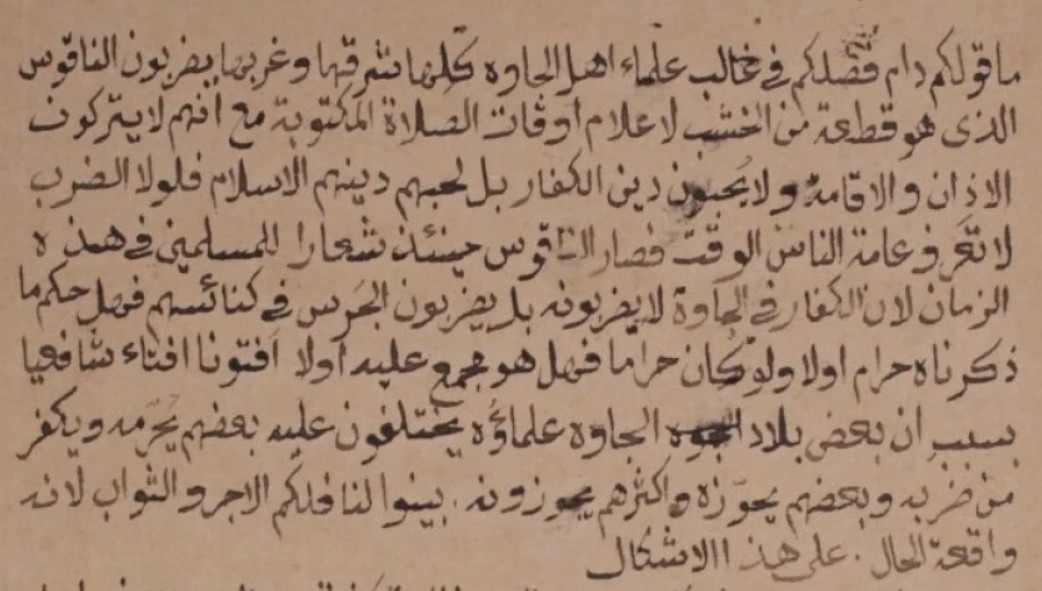 ما قولكم دام فضلكم في غالب علماء اهل الجاوه كلها شرقها وغربها يضربون الناقوس
الذى هو قطعة من الخشب لاعلام اوقات الصلاة المكتوبة مع انهم لا يتركون
الاذان والاقامة ولا يحبون دين الكفار بل لحبهم دينهم الاسلام فلولا الضرب
لا تعرف عامة الناس الوقت فصار الناقوس حينئذ شعارا للمسلمين في هذه
الزمان لان الكفار في الجاوة لا يضربونه بل يضربون الجَرس في كنائسهم فهل حكم ما
ذكرناه حرام اولا ولو كان حراما فهل هو مجمع عليه اولا افتونا افتاء شافعيا
بسبب ان بعض بلاد الجاوه علماؤُه يختلفون عليه بعضهم يُحرّمه ويكفر
من ضربه وبعضهم يجوّزه واكثرهم يجوزونه . بينوا لنا فلكم الاجر والثواب لانه
واقعة الحال . على هذا الاشكال